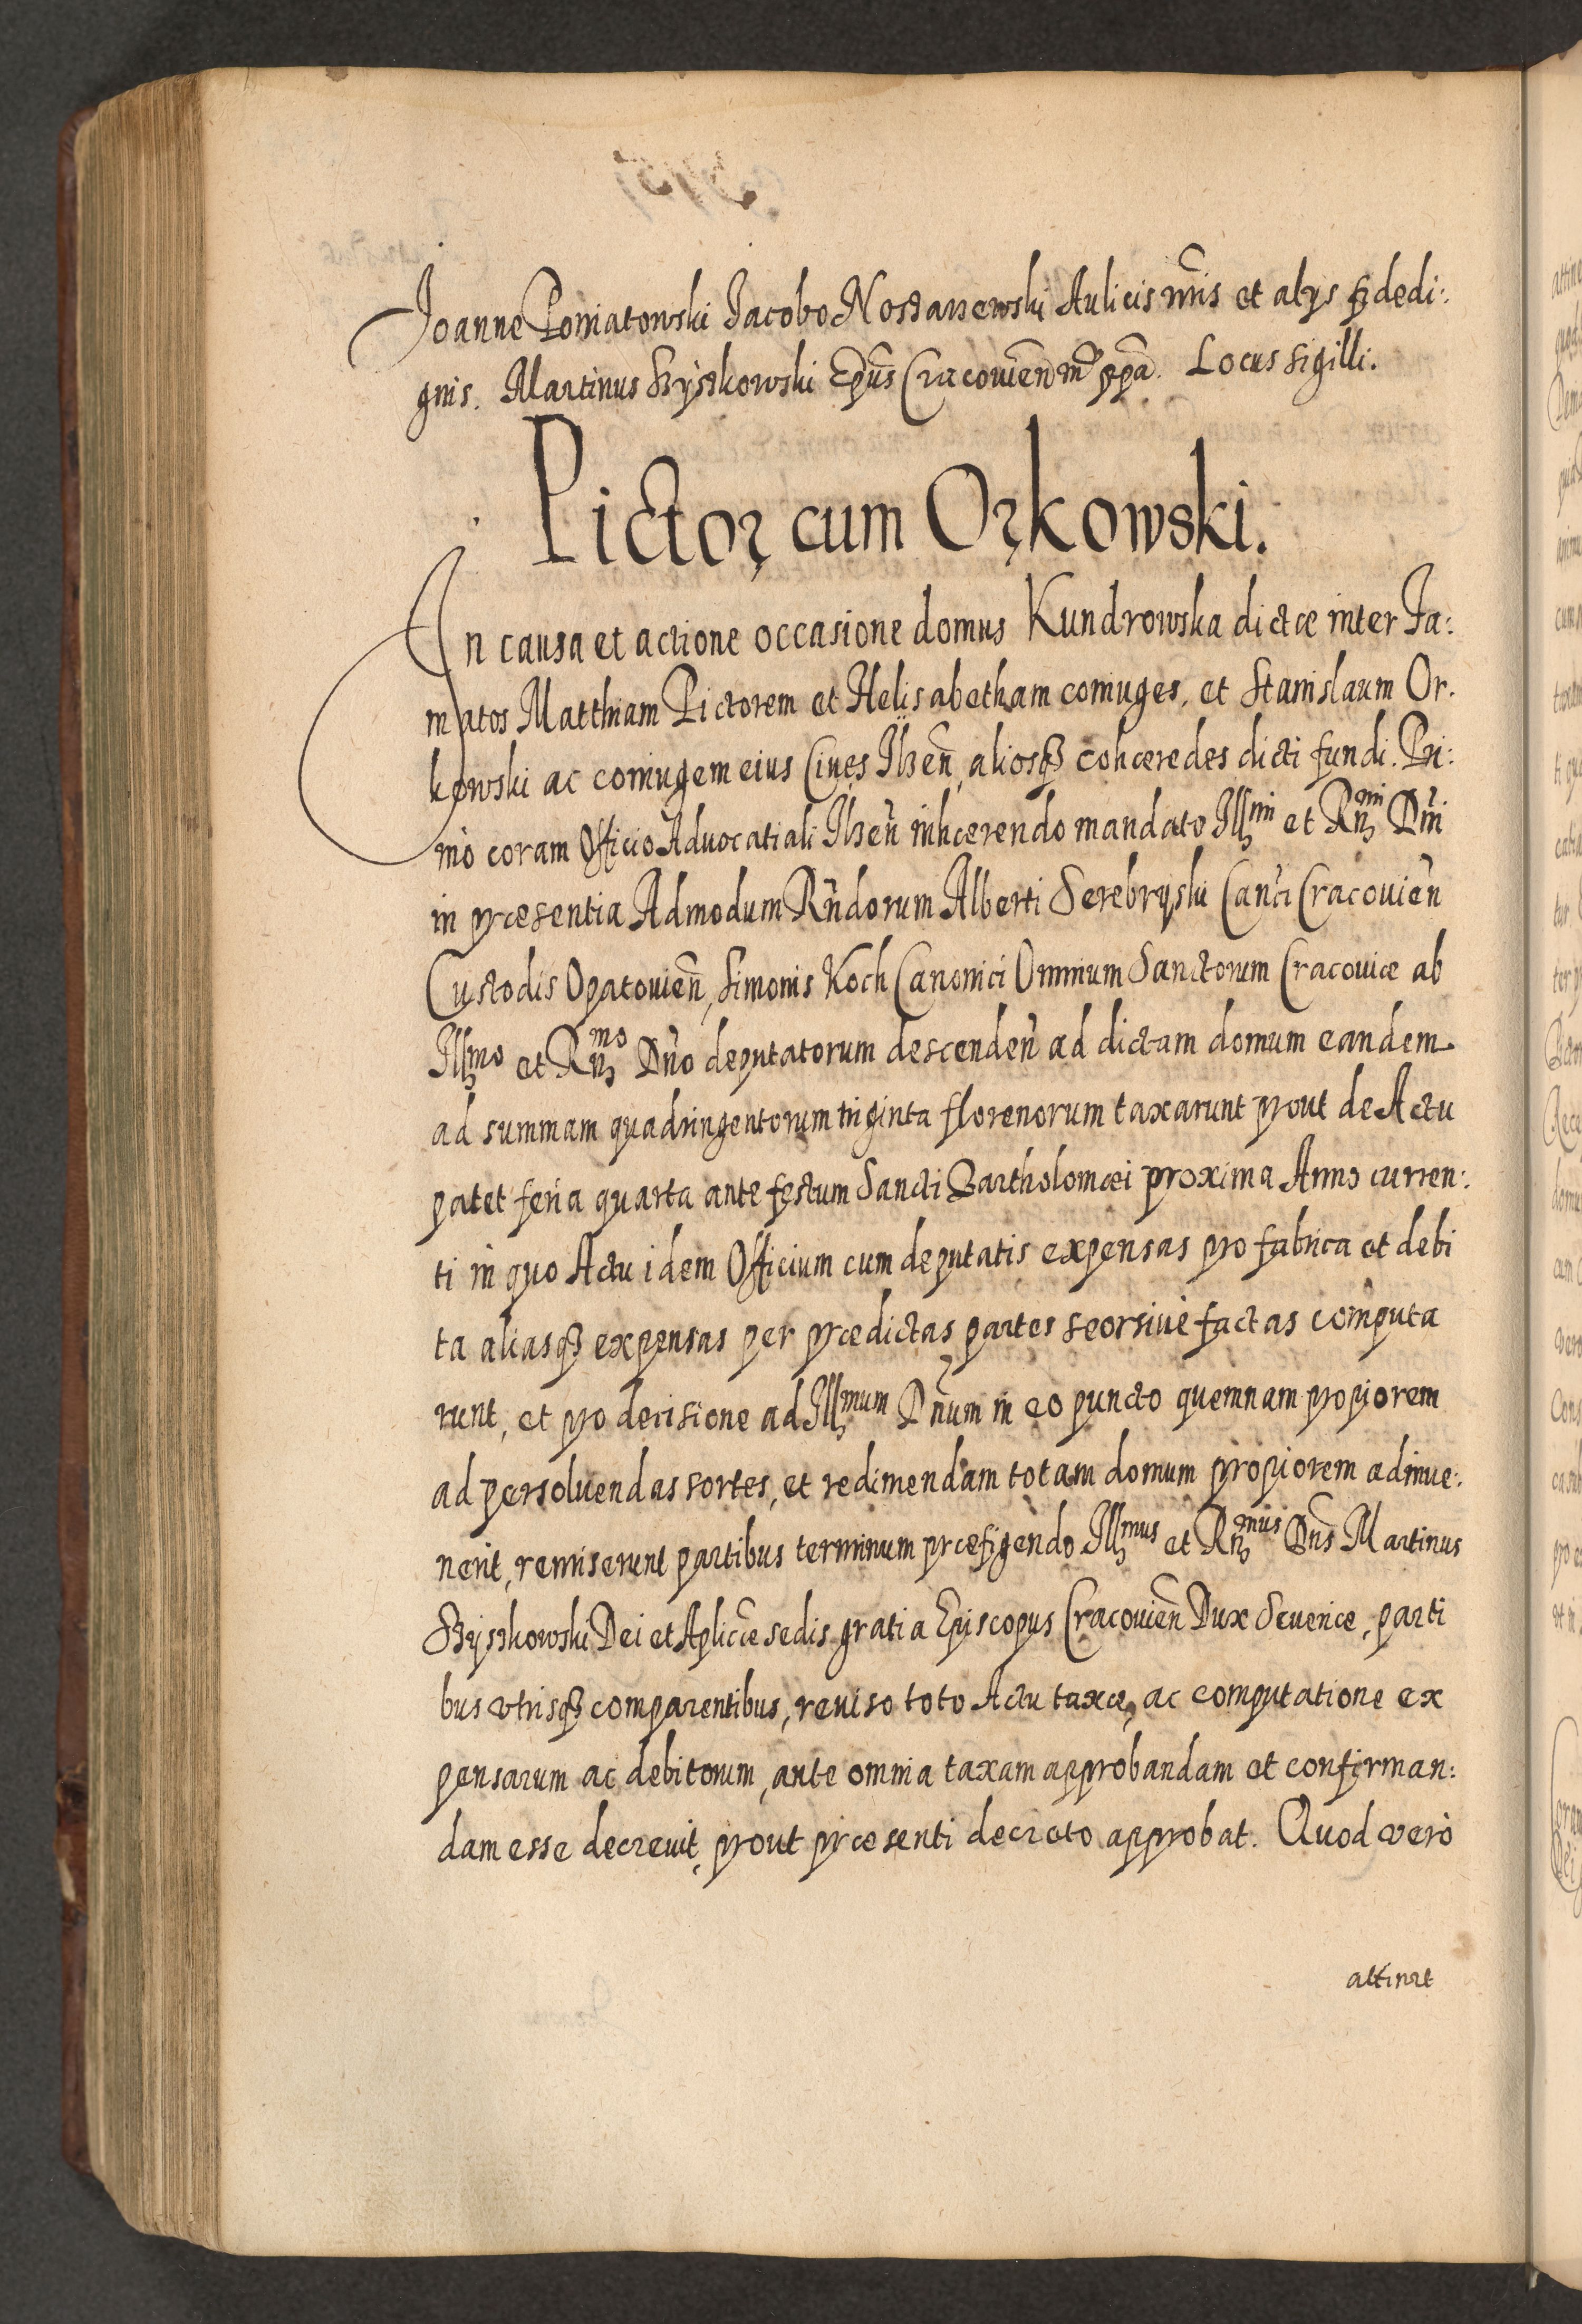 Joanne Poniatowski Jacobo Nostarzewski Aulicis nr̃is et alys fidedi:
gnis. Martinus Szyszkowski Ep̃us Cracovien̄ m̃p ppã. Locus Sigilli.
Pictor cum Orkowski.
In causa et actione occasione domus Kundrowska dictæ inter Fa:
matos Matthiam Pictorem et Helisabetham coniuges, et Stanislaum Or.
kowski ac coniugem eius Cives Ilzen̄, aliosq₃ cohæredes dicti fundi. Pri:
mò coram Officio Advocatiali Ilzen̄ inhærendo mandato Illmi et Rn̄mi Dn̄i
in præsentia Admodum Rn̄dorum Alberti Serebryski Canci Cracovien̄
Custodis Opatovien̄, Simonis Koch Canonici Omnium Sanctorum Cracoviæ ab
Illmo et Rn̄mo Dn̄o deputatorum descenden̄ ad dictam domum eandem
ad summam quadringentorum triginta florenorum taxarunt prout de Actu
patet feria quarta ante festum Sancti Bartholomæi proxima Anno curren:
ti in quo Actu idem Officium cum deputatis expensas pro fabrica et debi
ta aliasq₃ expensas per prædictas partes seorsivè factas computa
runt, et pro decisione ad Illmum Dn̄um in eo puncto quemnam propiorem
ad persolvendas sortes, et redimendam totam domum propiorem adinve:
nerit, remiserunt partibus terminum præfigendo. Illmus et Rn̄mus Dn̄s Martinus
Szyszkowski Dei et Aplicæ sedis gratia Episcopus Cracovien̄ Dux Severiæ, parti
bus vtrisq₃ comparentibus, reviso toto Actu taxæ, ac computatione ex
pensarum ac debitorum, ante omnia taxam approbandam et confirman:
dam esse decrevit, prout præsenti decreto approbat. Quod verò
attinet